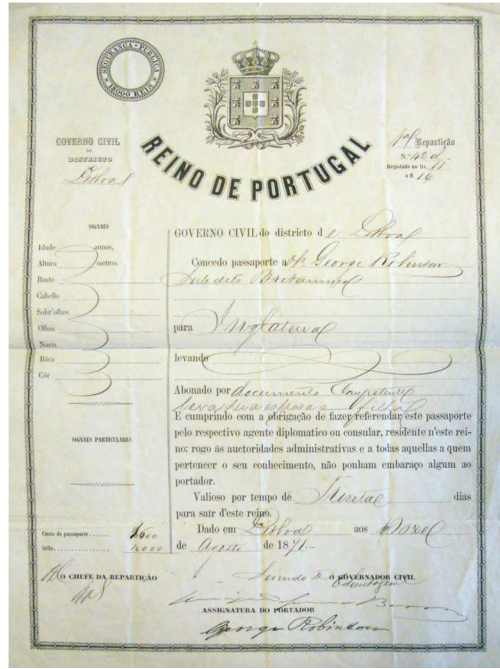 SEGURANÇA-PUBLICA
REINO DE PORTUGAL
GOVERNO CIVIL
DO
DISTRICTO
Lisboa
Repartição
Registado no Liv. 11
SIGNAES
Idade annos,
Altura metros.
Rosto
Cabello
Sobr'olhos
Olhos
Nariz
Bôca
Côr
SIGNAES PARTICULARES
GOVERNO CIVIL do districto de Lisboa
Concedo passaporte a George Robinson
Subdito Britannico
para Inglaterra
levando
Abonado por documento competente
leva sua esposa e filha
E cumprindo com a obrigação de fazer referendar este passaporte
pelo respectivo agente diplomatico ou consular, residente n'este rei-
no: rogo ás auctoridades administrativas e a todas aquellas a quem
pertencer o seu conhecimento, não ponham embaraço algum ao
portador.
Valioso por tempo de trinta dias
para sair d'este reino.
Dado em Lisboa aos doze
de Agosto de 1871.
Custo do passaporte
Sêllo
O CHEFE DA REPARTIÇÃO
Servindo de O GOVERNADOR CIVIL
ASSIGNATURA DO PORTADOR
George Robinson